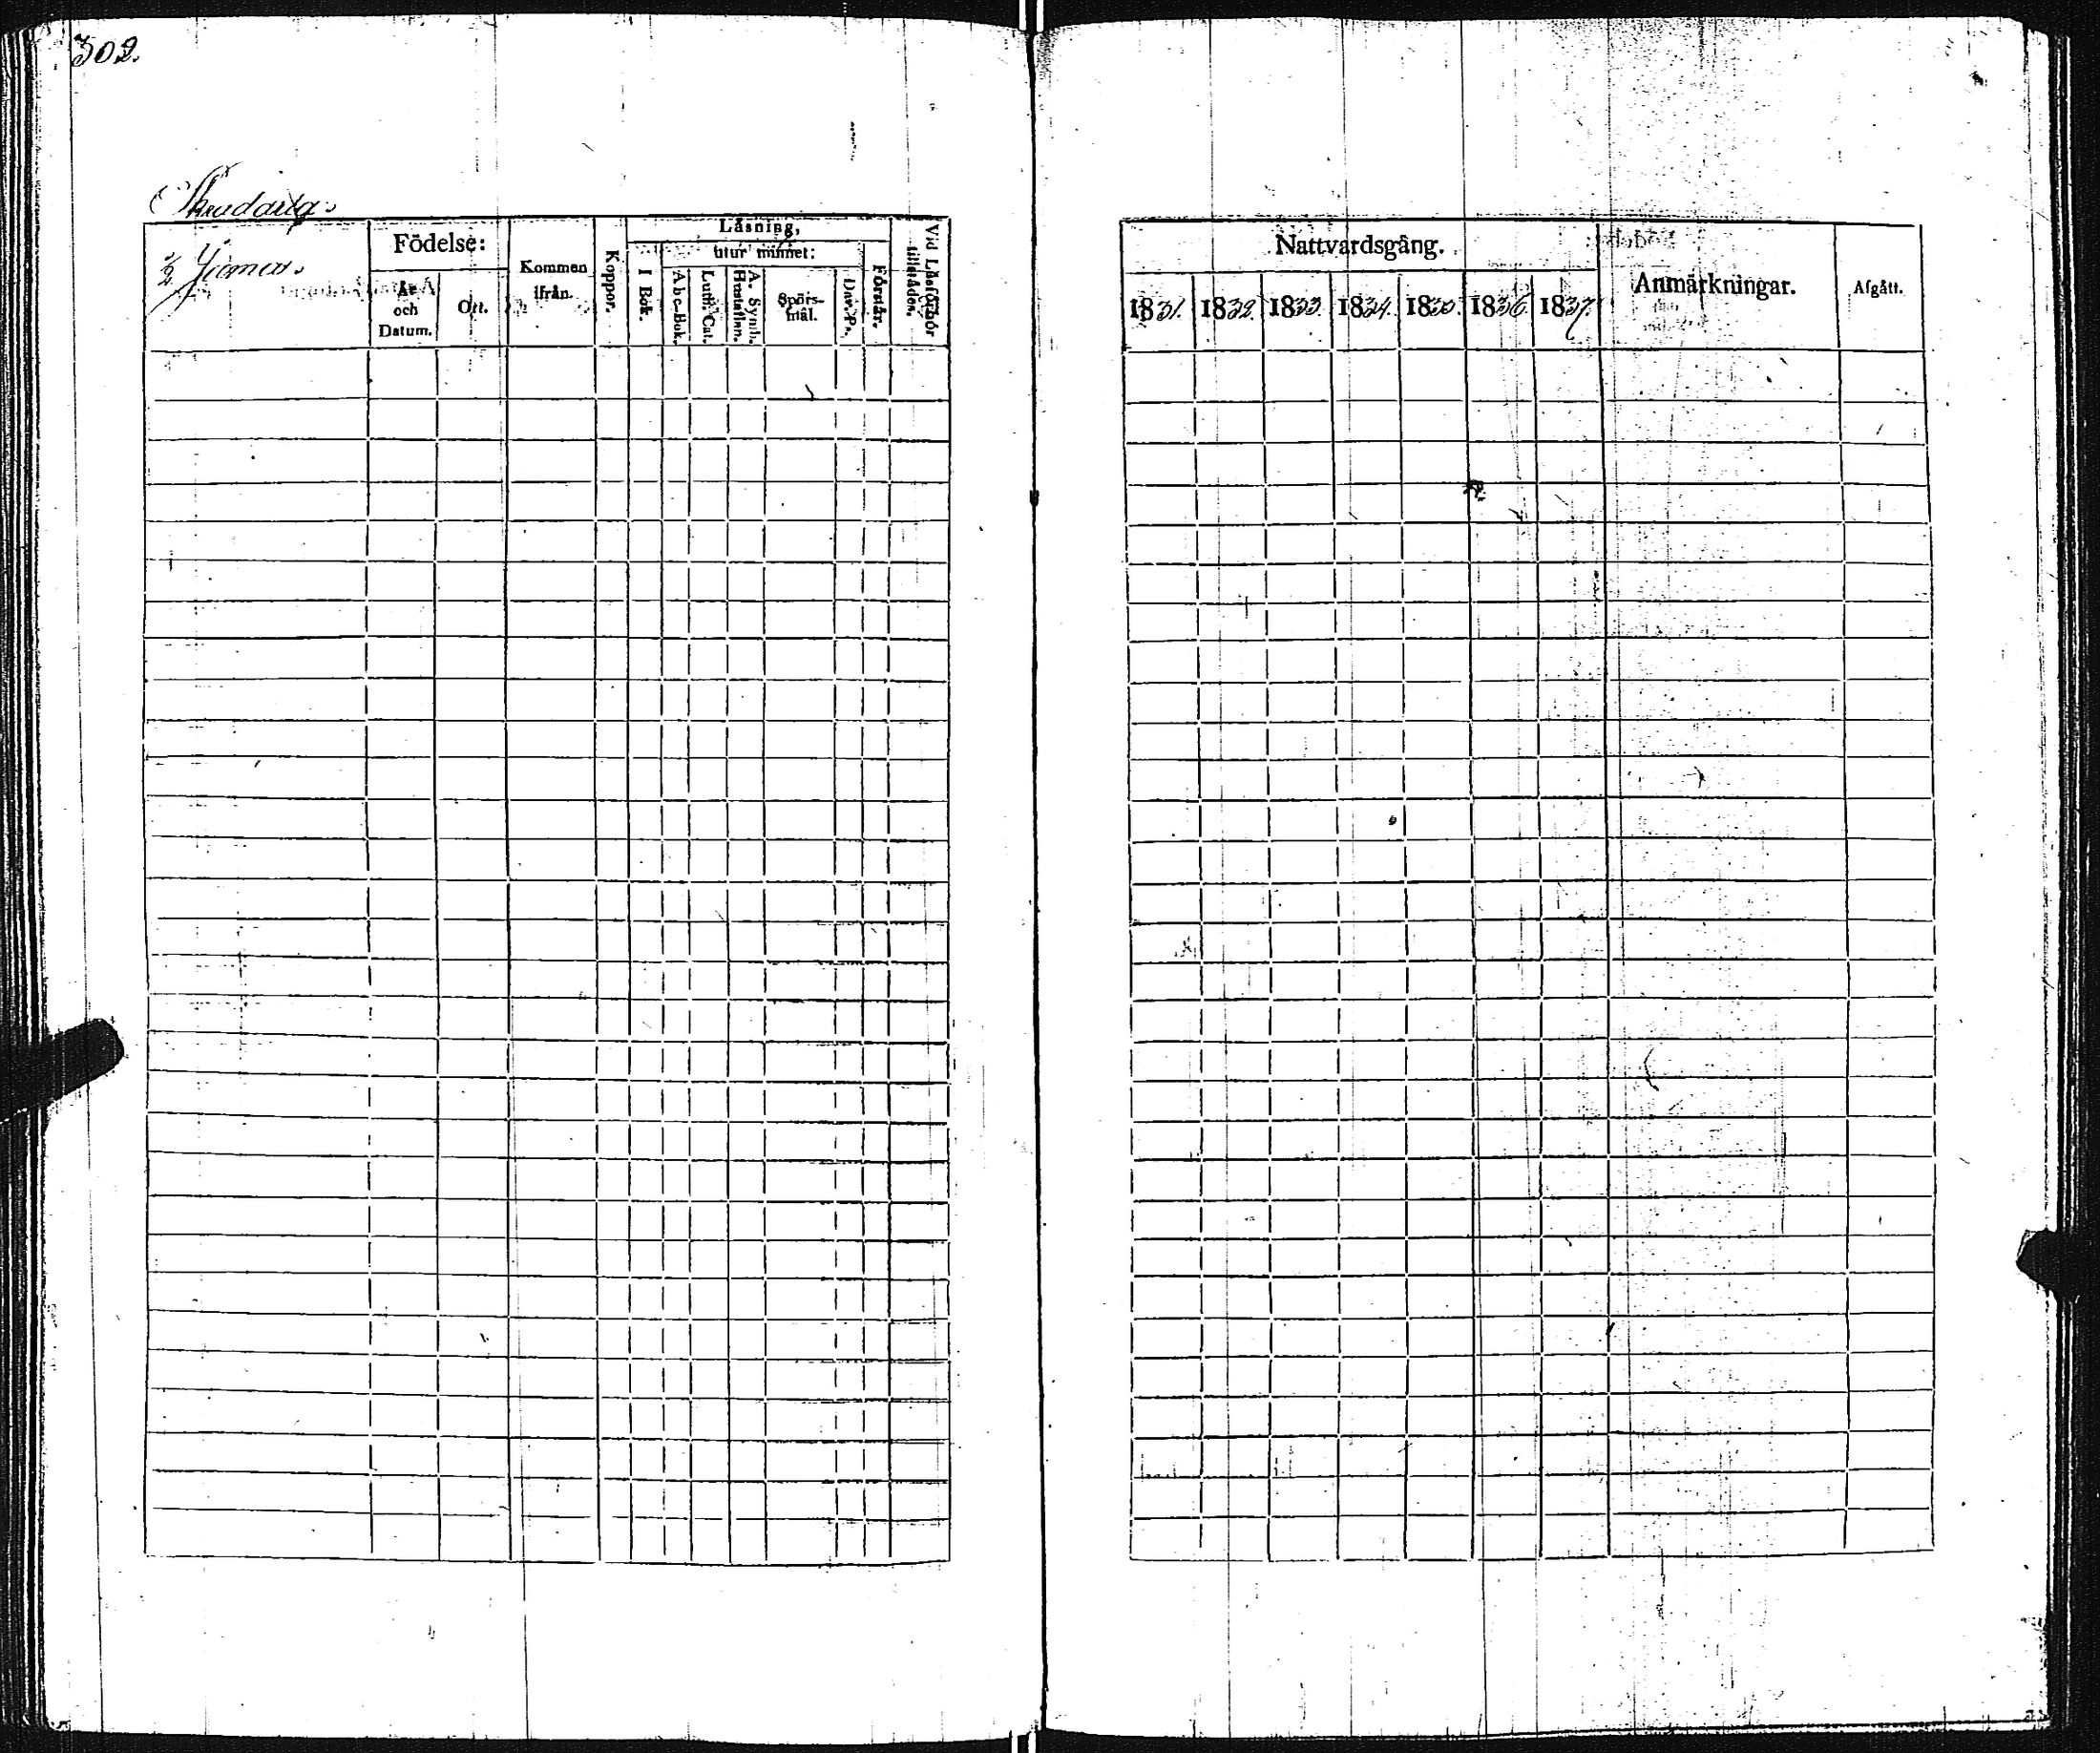 302.
Födelse:
År
och
Datum.
Ort.
Kommen
ifrån.
Koppor.
Läsning,
utur minnet:
I Bok.
Abc-Bok.
Luth. Cat.
A. Symb.
Hustaflan.
Spörs-
mål.
Dav. Ps.
Förstår.
Vid Läsförhör
tillstädes.
Nattvardsgång.
1831. 1832. 1833. 1834. 1835. 1836. 1837.
Anmärkningar.
Afgått.